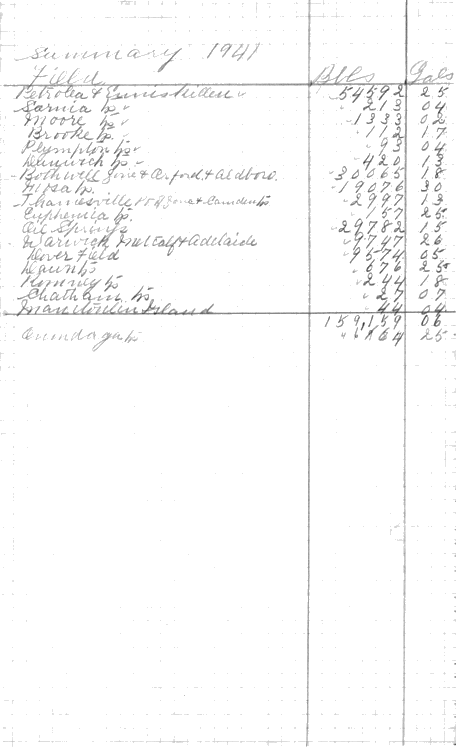 Summary 1941
Field Bbls Gals
Petrolea & Enniskillen 54592 25
Sarnia tp 213 04
Moore tp 1333 02
Brooke tp 112 17
Plympton tp 93 04
Dunwich tp 420 13
Bothwell Zone & Orford & Aldboro 30065 18
Mosa tp 19076 30
Thamesville Zone & Camden tp 2997 13
Euphemia tp 157 25
Oil Springs 29782 15
Warwick Metcalf & Adelaide 9747 26
Dover Field 9574 05
Dawn tp 676 25
Romney tp 244 18
Chatham tp 27 07
Manitoulin Island 44 04
159,159 06
Onondaga tp 25